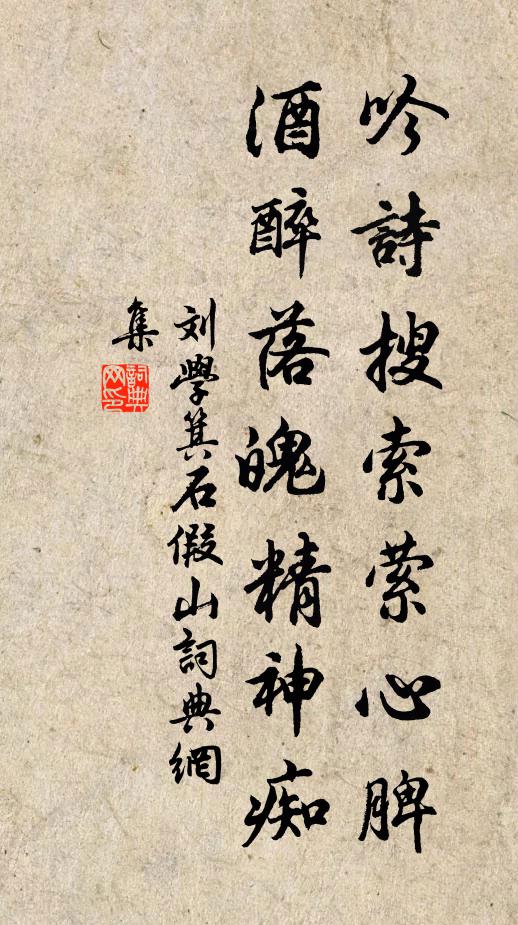 吟詩搜索萦心脾
酒醉落魄精神痴
刘學箕石假山詞典網
集
詞典
网印